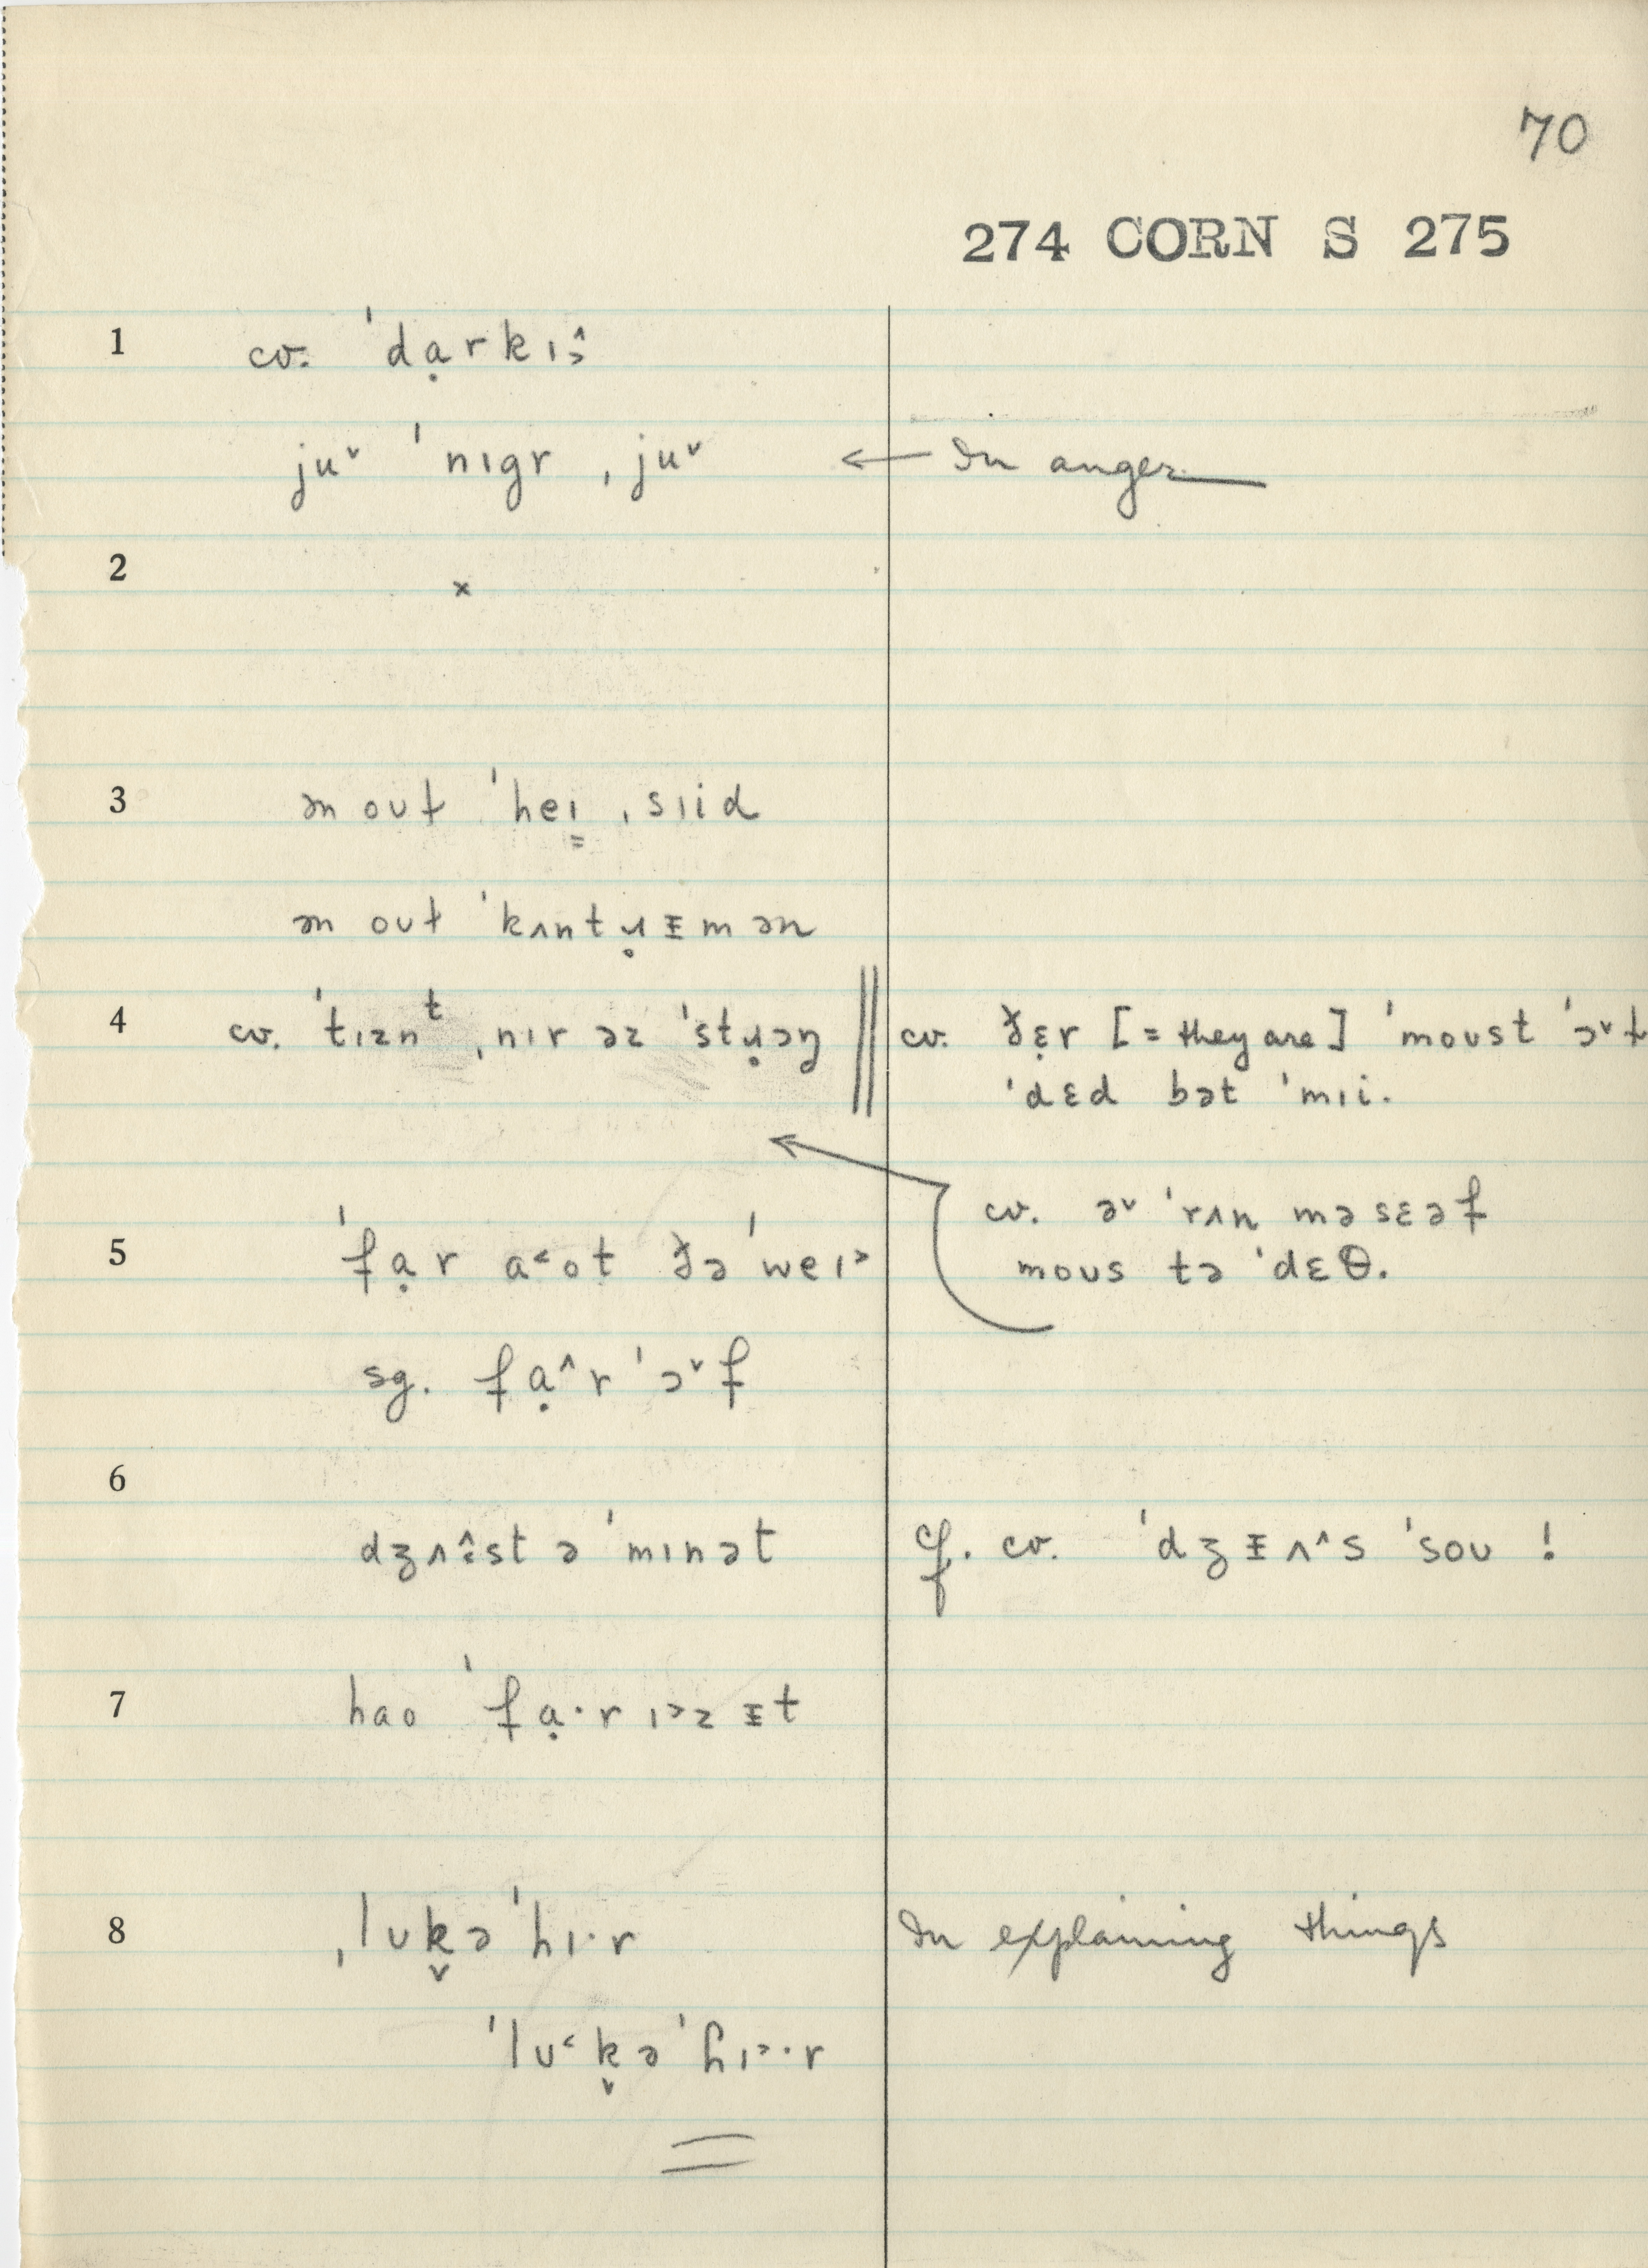 70
274 CORN S 275
1 cv. ˈdạrkɪ˃̂
juᵛ ˈnɪgr ˌjuᵛ ← In anger
2 x
3 ən oʊɫ ˈheɪ̳ ˌsɪid
ən oʊɫ ˈkʌntɹ̥ᵻmən
4 cv. ˈtɪznᵗ ˌnɪr əz ˈstɹ̥ɔŋ ‖ cv. ðɛ̣r [= they are] ˈmoʊst ˈɔᵛɫ
ˈdɛd bət ˈmɪi.
cv. əᵛ ˈrʌn məsɛəf
moʊs tə ˈdɛθ.
5 ˈfạr a˂ot ðəˈweɪ˃
sg. fạ^r ˈɔᵛf
6 dʒʌ˂̂st ə ˈmɪnət cf. cv. ˈdʒᵻʌ^s ˈsoʊ !
7 hao ˈfạ·rɪ˃zᵻt
8 ˌlʊk̬əˈhɪ·r In explaining things
ˈlʊ˂k̬əˈhɪ˃·r